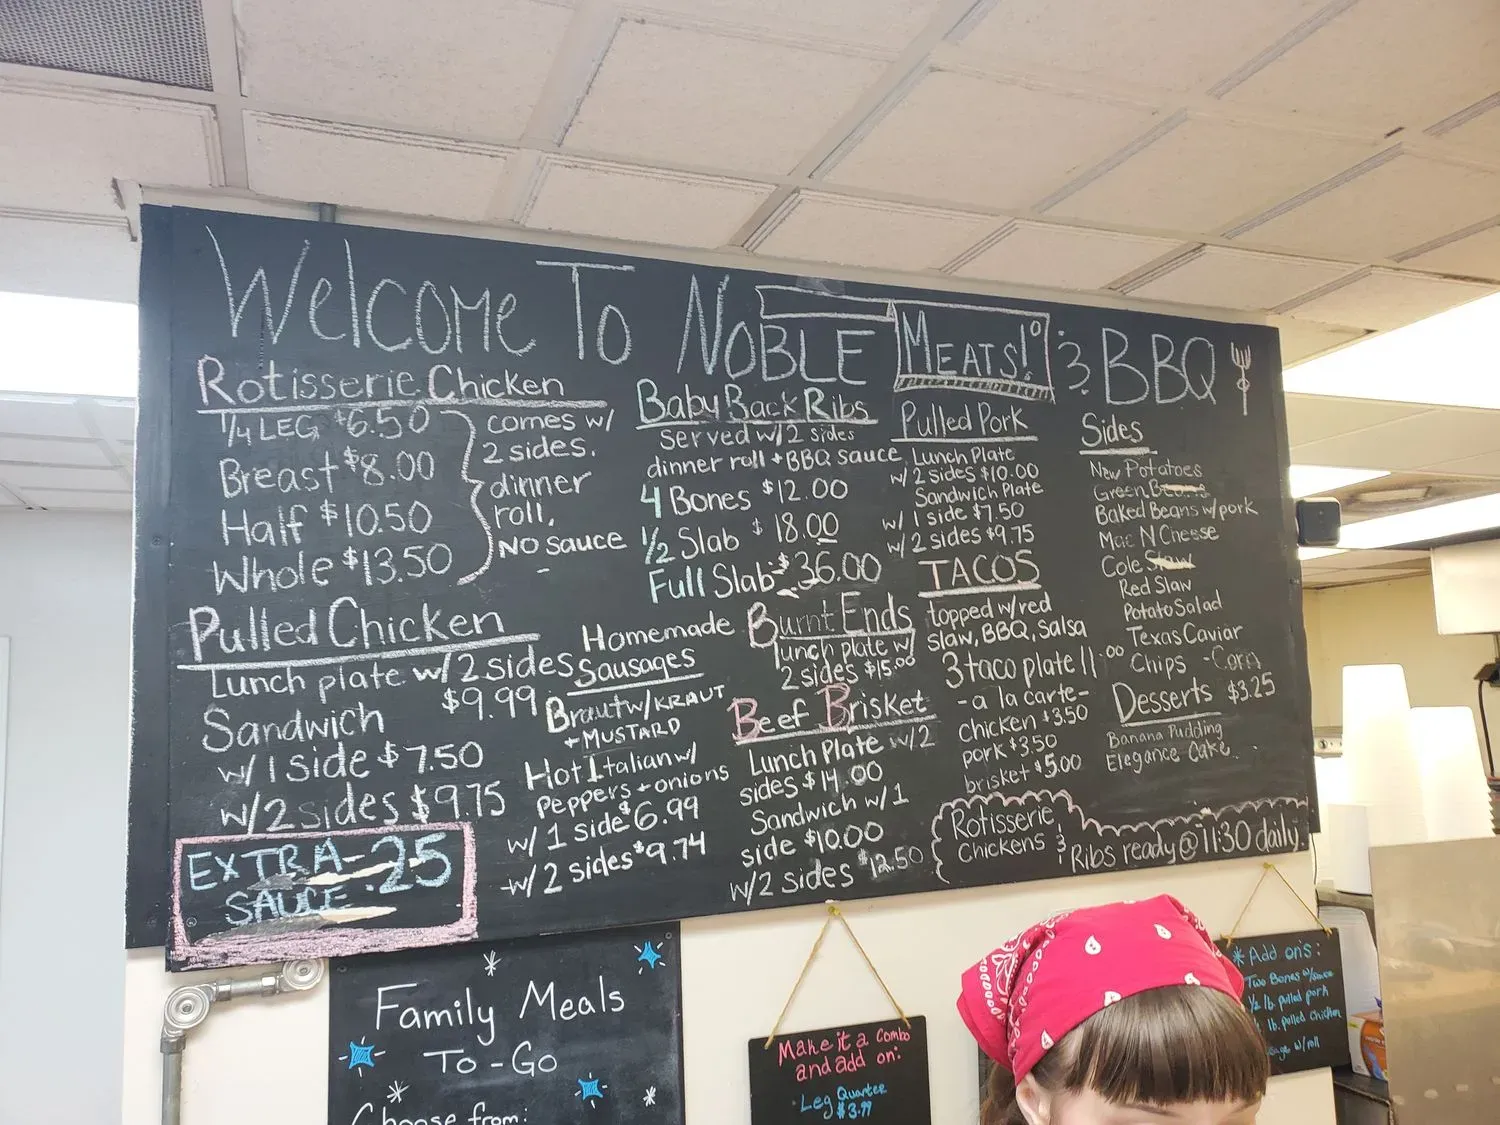 Welcome To NOBLE MEATS! & BBQ
Rotisserie Chicken
1/4 LEG $6.50
Breast $8.00
Half $10.50
Whole $13.50
comes w/
2 sides.
dinner
roll,
NO sauce
Pulled Chicken
Lunch plate w/2 sides
$9.99
Sandwich
w/1 side $7.50
w/2 sides $9.75
EXTRA- .25
SAUCE
Baby Back Ribs
served w/2 sides
dinner roll + BBQ sauce
4 Bones $12.00
1/2 Slab $18.00
Full Slab $36.00
Homemade
Sausages
Braut w/KRAUT
+ MUSTARD
Hot Italian w/
peppers + onions
w/ 1 side $6.99
w/ 2 sides $9.74
Burnt Ends
lunch plate w/
2 sides $15.00
Beef Brisket
Lunch Plate w/2
sides $14.00
Sandwich w/1
side $10.00
w/2 sides $12.50
Pulled Pork
Lunch Plate
w/ 2 sides $10.00
Sandwich Plate
w/ 1 side $7.50
w/ 2 sides $9.75
TACOS
topped w/red
slaw, BBQ, salsa
3 taco plate 11.00
- a la carte -
chicken $3.50
pork $3.50
brisket $5.00
Sides
New Potatoes
Green Beans
Baked Beans w/pork
Mac N Cheese
Cole Slaw
Red Slaw
Potato Salad
Texas Caviar
Chips - Corn
Desserts $3.25
Banana Pudding
Elegance Cake
Rotisserie
Chickens &
Ribs ready @ 11:30 daily.
Family Meals
To-Go
Choose from:
Make it a Combo
and add on:
Leg Quarter
$3.99
* Add ons:
Two Bones w/sauce
1/2 lb. pulled pork
lb. pulled chicken
w/roll